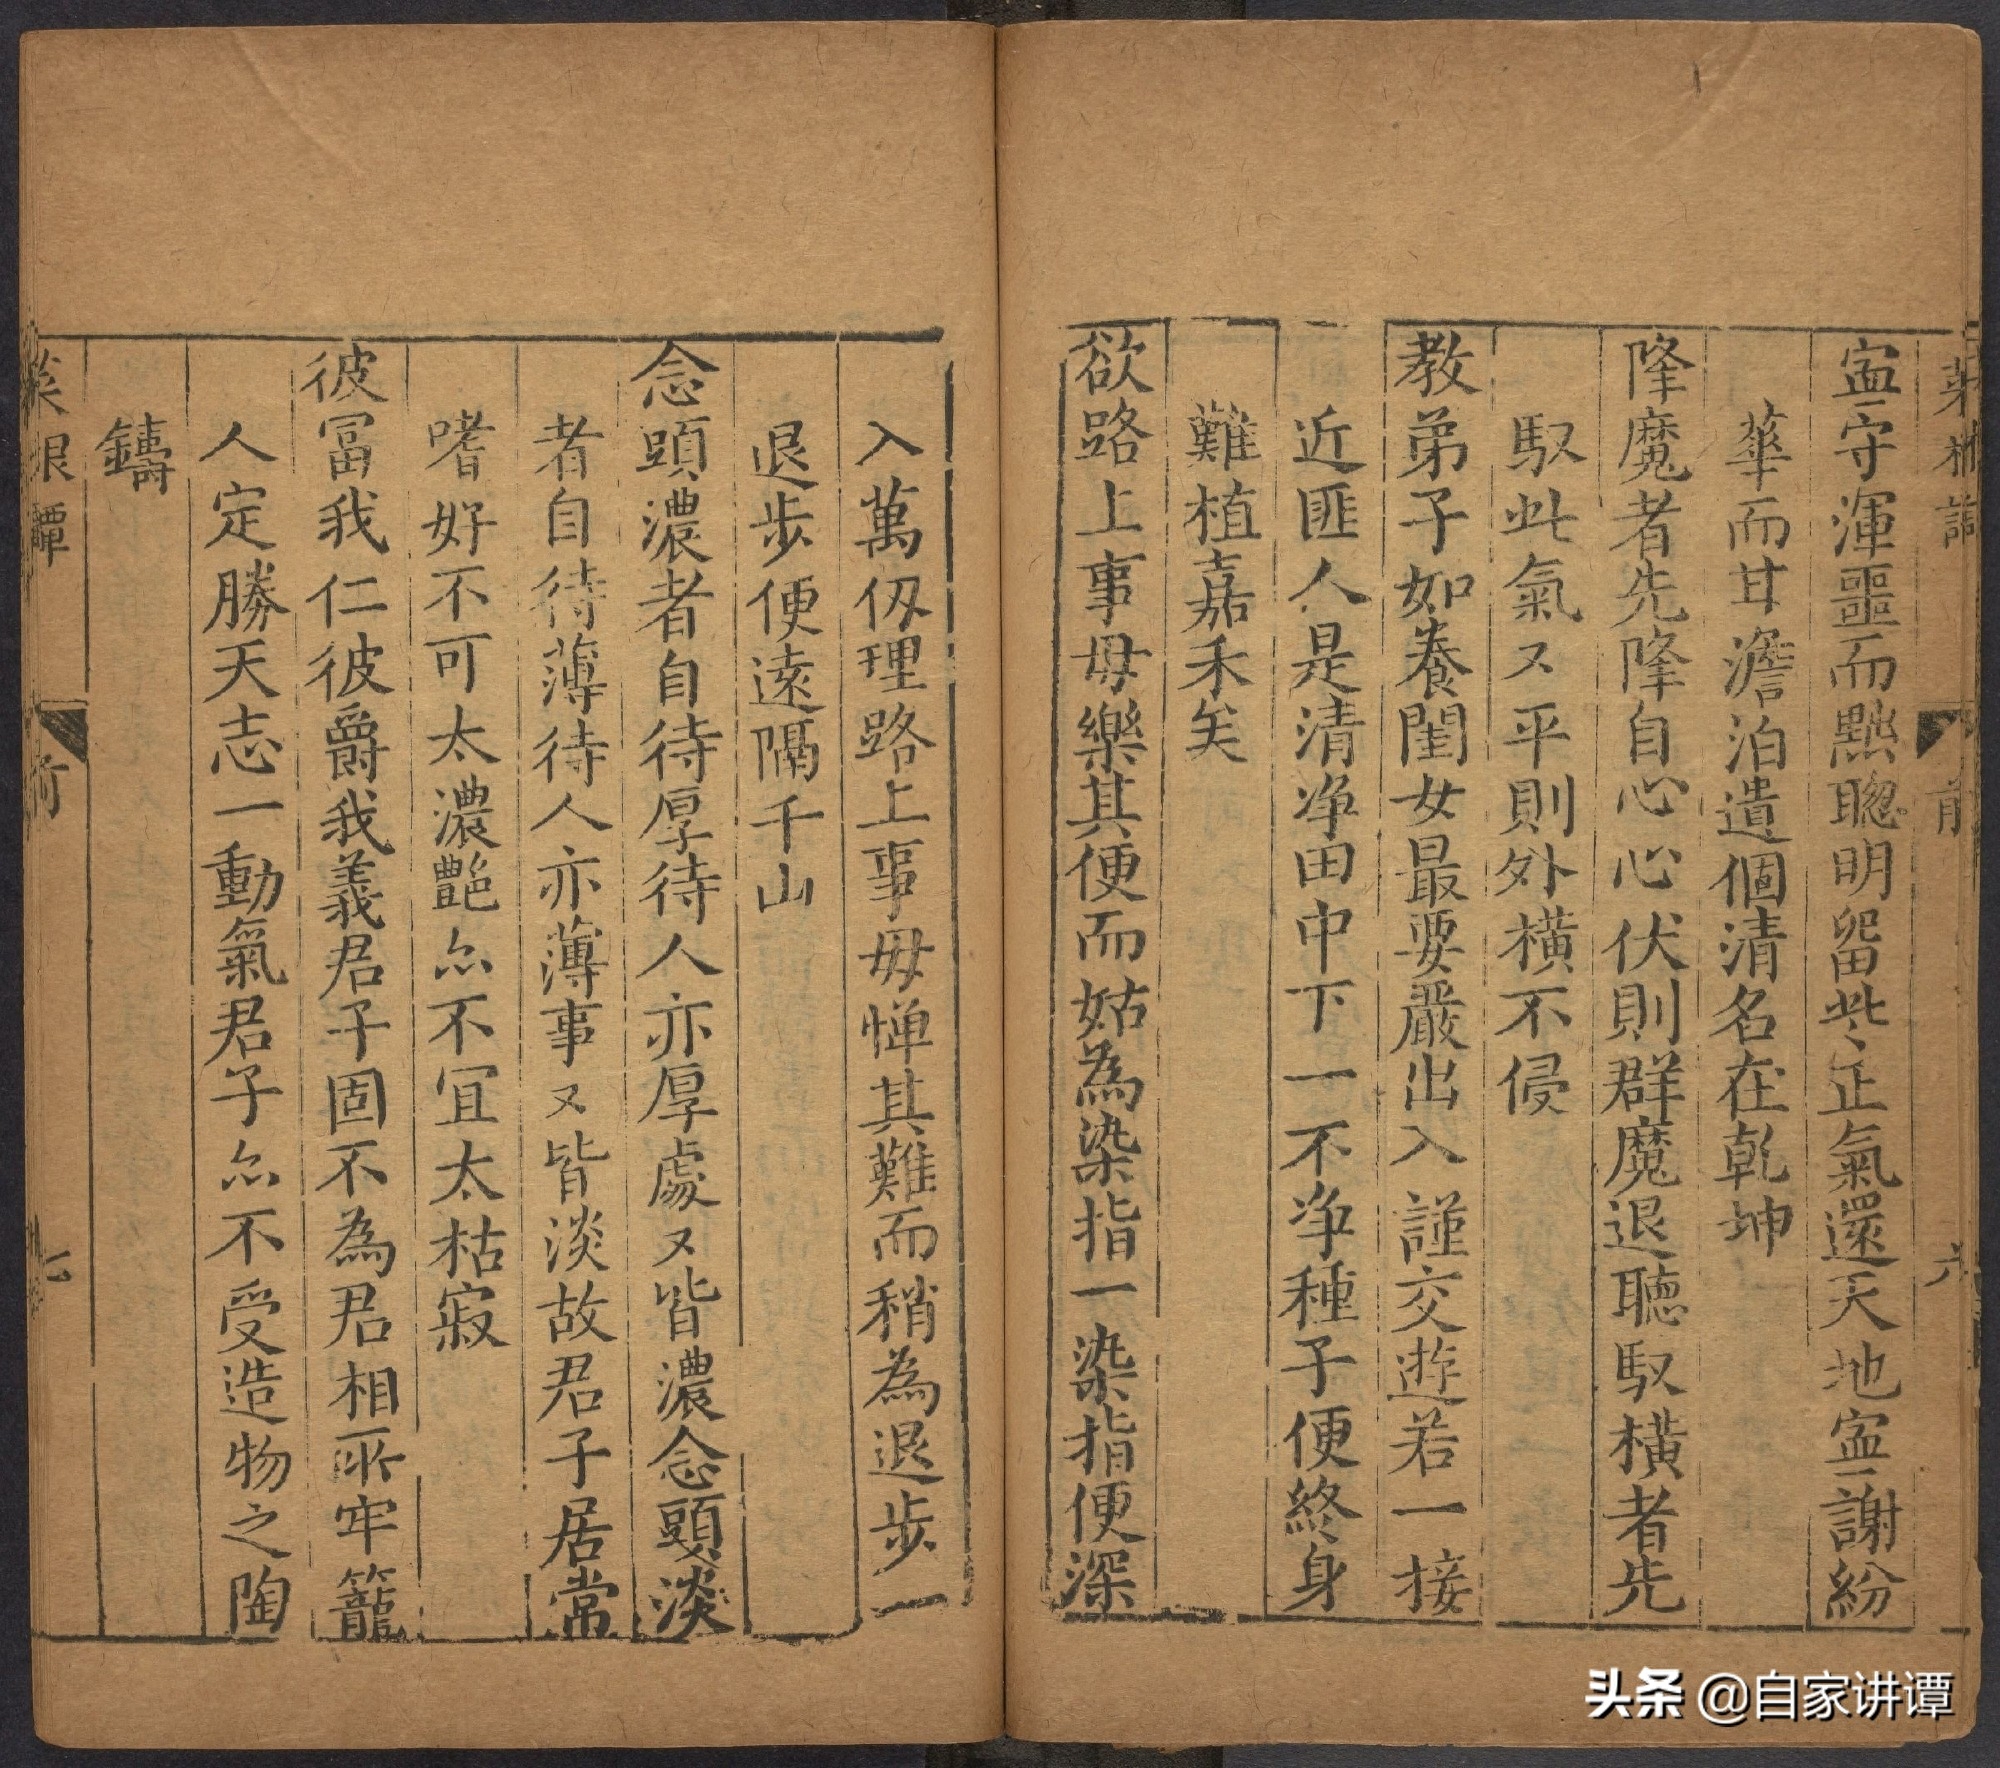 菜根譚
前
六
寍守渾噩而黜聰明留些正氣還天地寍謝紛
華而甘澹泊遺個清名在乾坤
降魔者先降自心心伏則群魔退聽馭橫者先
馭此氣又平則外橫不侵
教弟子如養閨女最要嚴出入謹交遊若一接
近匪人是清净田中下一不净種子便終身
難植嘉禾矣
欲路上事毋樂其便而姑為染指一染指便深
入萬仭理路上事毋憚其難而稍為退步一
退步便遠隔千山
念頭濃者自待厚待人亦厚處又皆濃念頭淡
者自待薄待人亦薄事又皆淡故君子居常
嗜好不可太濃艷亦不宜太枯寂
彼冨我仁彼爵我義君子固不為君相所牢籠
人定勝天志一動氣君子亦不受造物之陶
鑄
菜根譚
前
七
头条 @自家讲谭